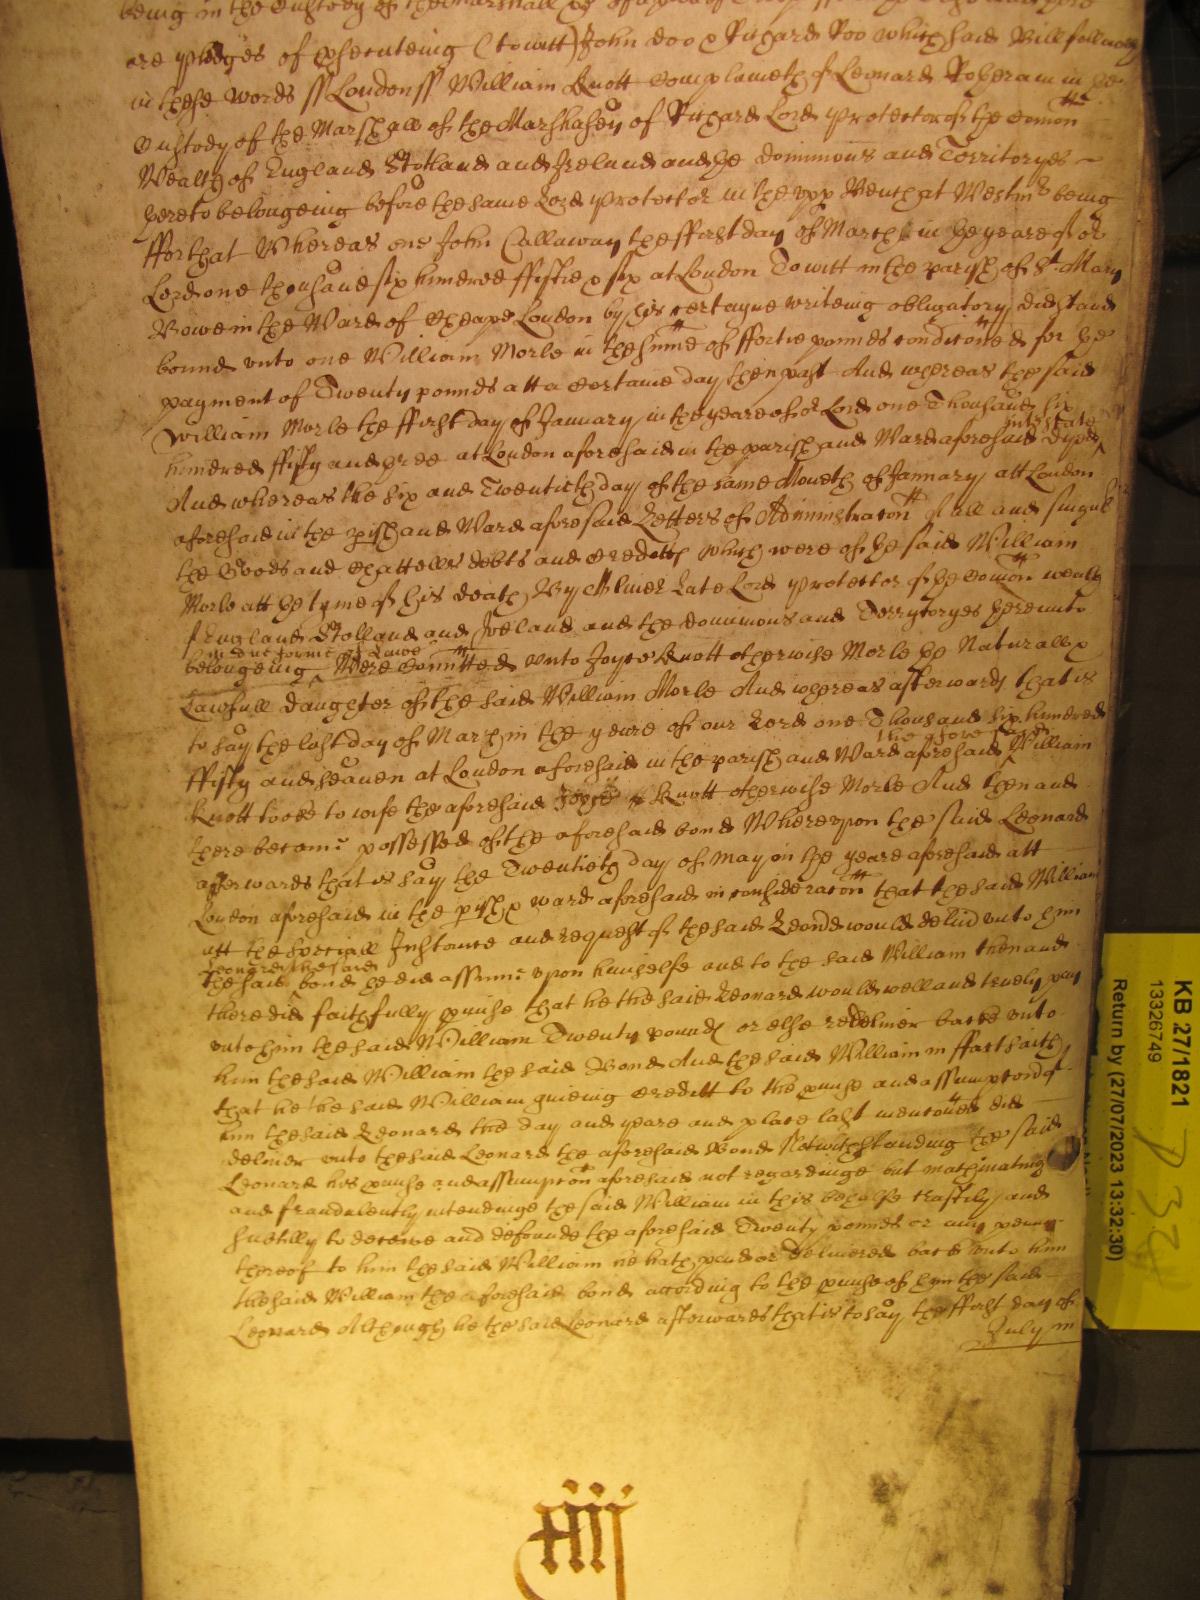 being in the Custody of the Marshall &c of a plea of
are pledges of p'secuteing (to witt) John doo & Richard Roo which said Bill followeth
in these words ss London ss William Knott complaineth of Leonard Roheram in the
Custody of the Marshall of the Marshalsey of Richard Lord Protector of the Comon
Wealth of England Scotland and Ireland and the dominions and Territoryes
thereto belongeing before the same Lord Protector in the upp Bench at Westm' being
ffor that Whereas one John Callaway the ffirst day of March in the yeare of or
Lord one thousand six hundred ffiftie & six at London To witt in the parish of St. Mary
Bowe in the Ward of Cheape London by his certayne writeing obligatory did stand
bound unto one William Morle in the sume of ffortie pounds condiconed for the
payment of Twenty pounds att a certaine day then past And whereas the said
William Morle the ffirst day of January in the yeare of or Lord one Thousand six
hundred ffifty and three at London aforesaid in the parish and Ward aforesaid dyed
intestate
And whereas the six and Twentieth day of the same Moneth of January att London
aforesaid in the p'ish and Ward aforesaid Letters of Administracon of all and singuler
the Goods and Chattells debts and Creditts which were of the said William
Morle att the tyme of his death By Oliver Late Lord Protector of the Comon wealth
of England Scotland and Ireland and the dominions and Terrytoryes thereunto
in due forme of Lawe
belongeing Were Comitted unto Joyce Knott otherwise Morle the Naturall &
Lawfull daughter of the said William Morle And whereas afterwards that is
to say the last day of March in the yeare of our Lord one Thousand six hundred
ffifty and seaven at London aforesaid in the parish and Ward aforesaid William
the aforesaid
Knott tooke to wife the aforesaid Joyce Knott otherwise Morle And then and
there became possessed of the aforesaid bond Whereupon the said Leonard
afterwards that is say the Twentieth day of May in the yeare aforesaid att
London aforesaid in the p'ish & ward aforesaid in consideracon that the said William
att the speciall Instance and request of the said Leonard would deliv' unto him
Leonard the said
the said bond he did assume upon himselfe and to the said William then and
there did faithfully p'mise that he the said Leonard would well and truely pay
unto him the said William Twenty pounds or else redeliver backe unto
him the said William the said Bond And the said William in ffact saith
that he the said William giveing Creditt to the p'mise and assumpcon of
him the said Leonard the day and yeare and place last menconed did
deliver unto the said Leonard the aforesaid Bond Notwithstanding the said
Leonard his p'mise and assumpcon aforesaid not regardinge but machinating
and fraudulently intendinge the said William in this behalfe craftily and
suttilly to deceive and defraude the aforesaid Twenty pounds or any penny
thereof to him the said William ne hath payd or delivered backe unto him
the said William the aforesaid bond according to the p'mise of him the said
Leonard Although he the said Leonard afterwards that is to say the ffirst day of
July in
iiij
KB 27/1821
13326749
Return by (27/07/2023 13:32:30)